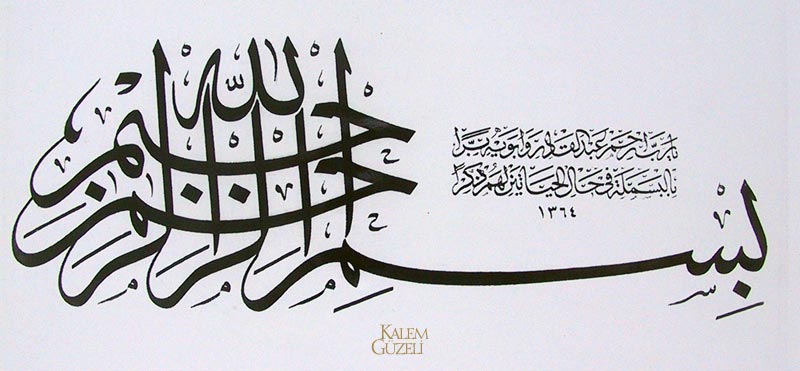 بِسْمِ الله الرحمن الرحيم
يا ربّ ارحم عبد القادر وابويه برًّا
بالبسملة في حال الحياتين لهم ذكرًا
١٣٦٤
KALEM
GÜZELİ